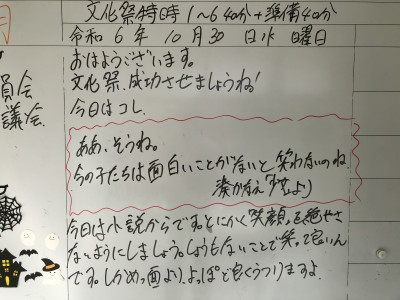 員会
議会
文化祭特時 1~6 40分+準備40分
令和 6年 10月 30日 水曜日
おはようございます。
文化祭、成功させましょうね!
今日はコレ
ああ、そうね。
今の子たちは面白いことがないと笑わないのね
湊かなえ より
今日は小説からです。とにかく笑顔を絶やさ
ないようにしましょう。しょうもないことで笑って良いん
です。しかめっ面より、よっぽど良くうつりますよ